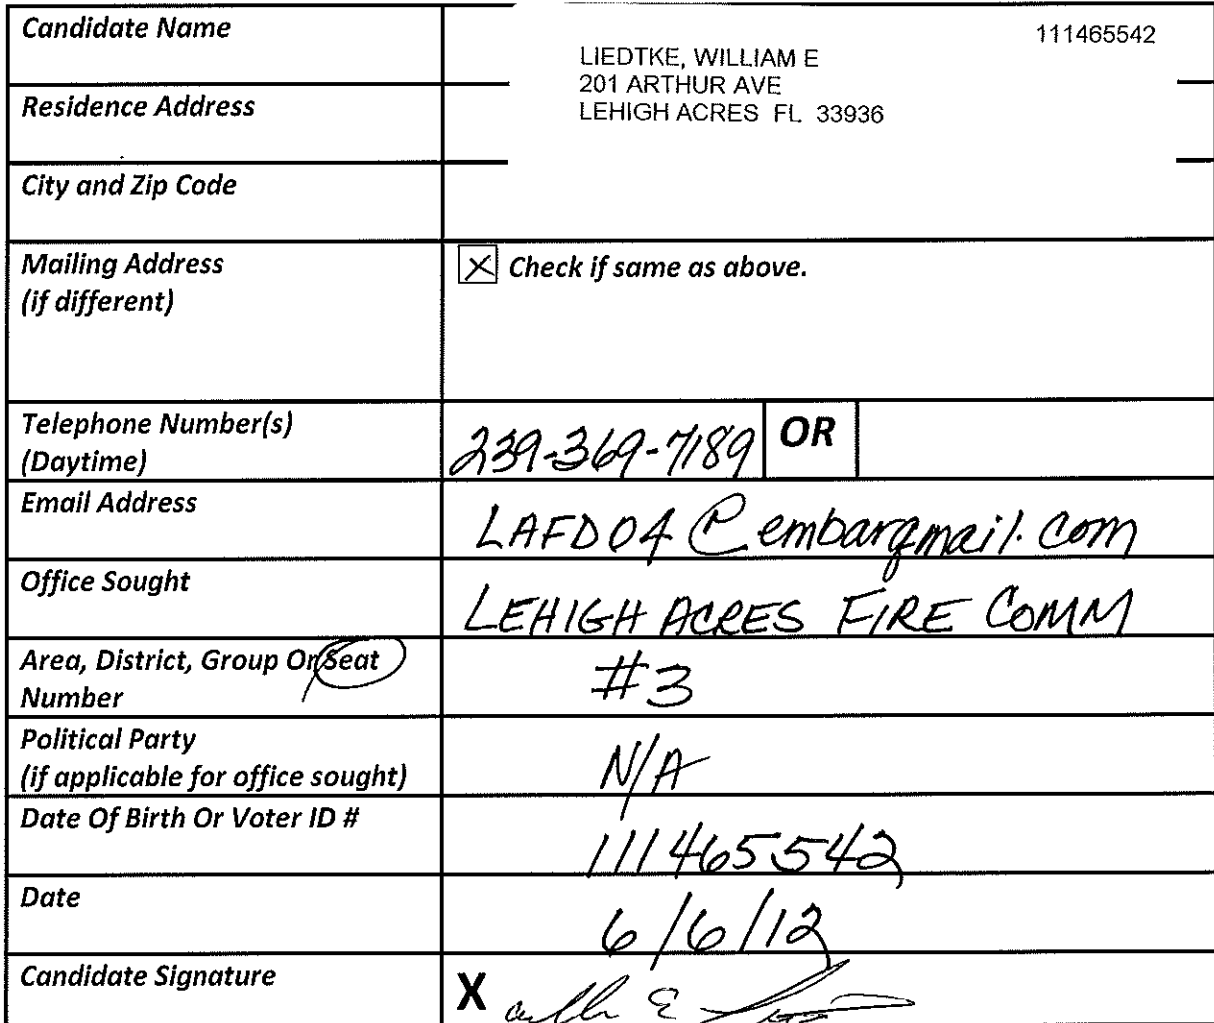 Candidate Name
111465542
LIEDTKE, WILLIAM E
201 ARTHUR AVE
LEHIGH ACRES FL 33936
Residence Address
City and Zip Code
Mailing Address
(if different)
Check if same as above.
Telephone Number(s)
(Daytime)
239-369-7189
OR
Email Address
LAFD04@embarqmail.com
Office Sought
LEHIGH ACRES FIRE COMM
Area, District, Group Or Seat
Number
#3
Political Party
(if applicable for office sought)
N/A
Date Of Birth Or Voter ID #
111465542
Date
6/6/12
Candidate Signature
X